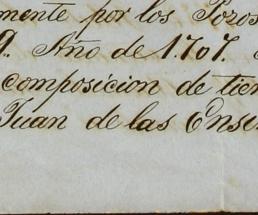 mente por los Pozos
9. Año de 1707.
composicion de tier
Juan de las Ense